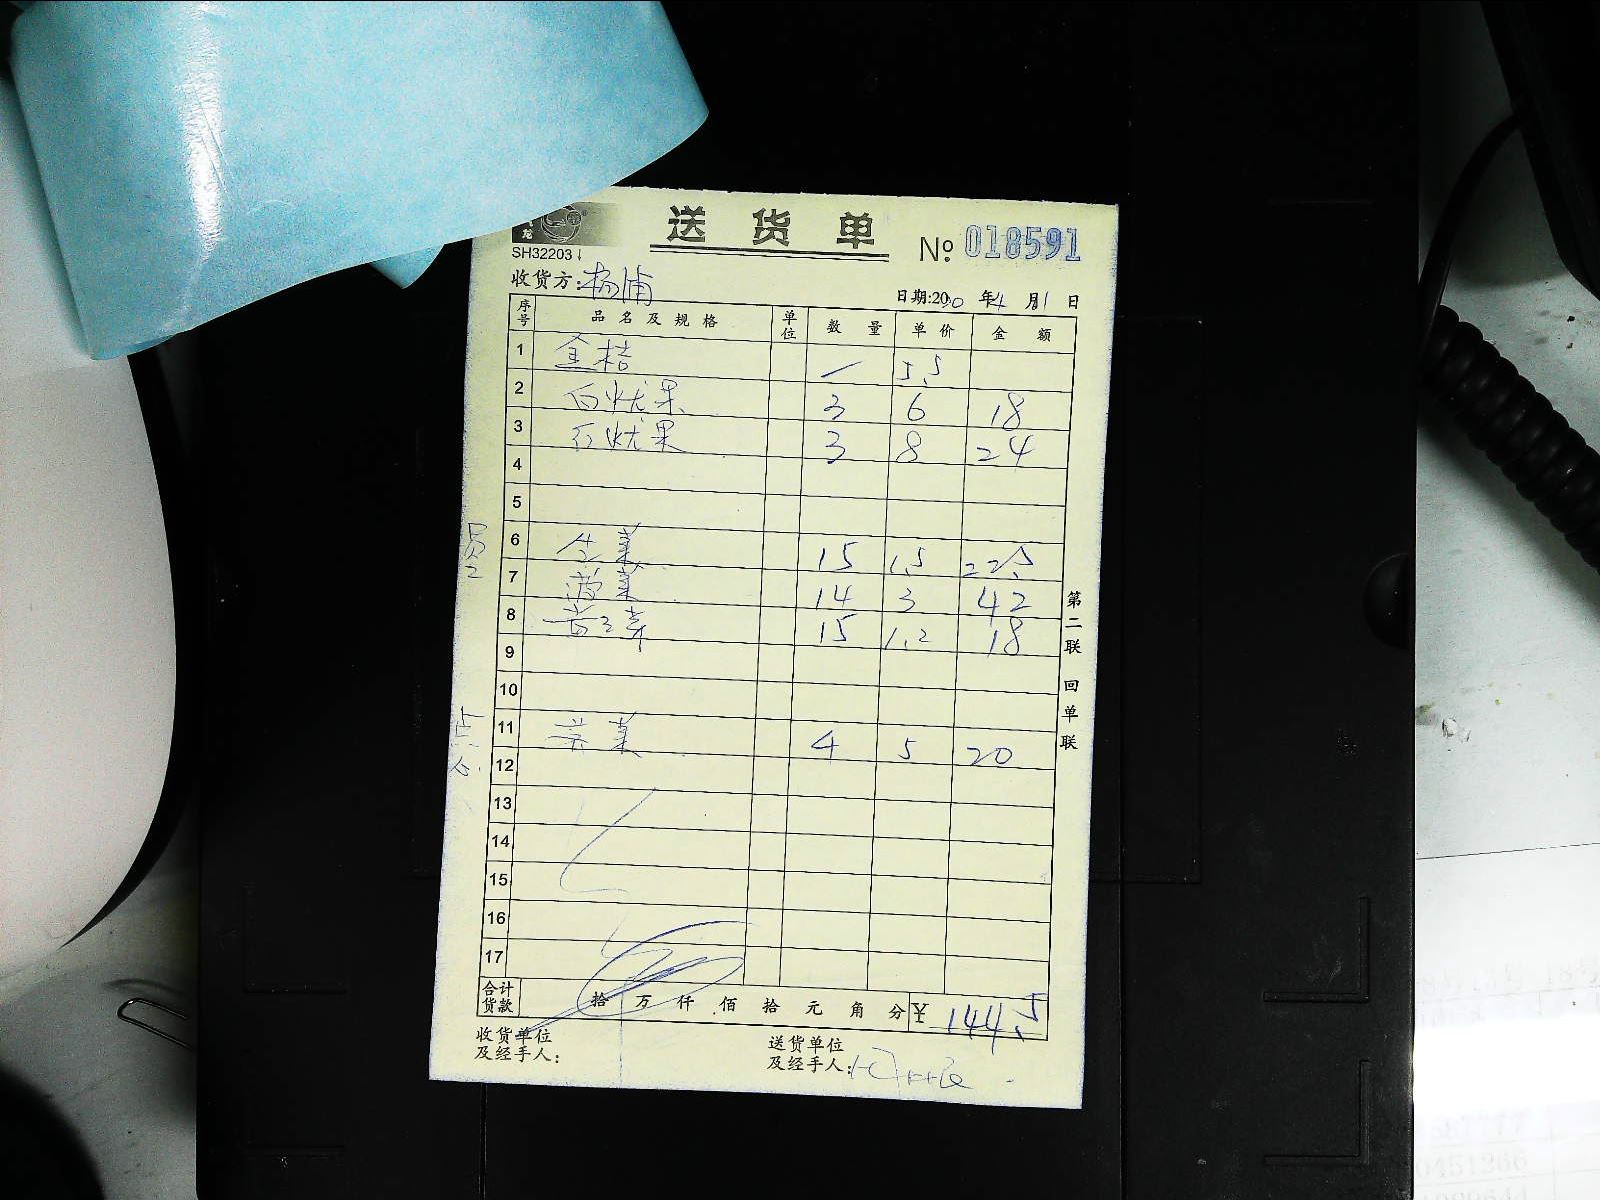 送货单
No 018591
SH32203
收货方:杨浦
日期:2020年4月1日
序号 品名及规格 单位 数量 单价 金额
1 金桔 一 5.5
2 白忧果 3 6 18
3 石忧果 3 8 24
4
5
6 生菜 15 1.5 22.5
7 菠菜 14 3 42
8 15 1.2 18
9
10
11 菜 4 5 20
12
13
14
15
16
17
合计货款 拾万仟佰拾元角分 ¥ 144.5
收货单位及经手人:
送货单位及经手人:
第二联 回单联
点心